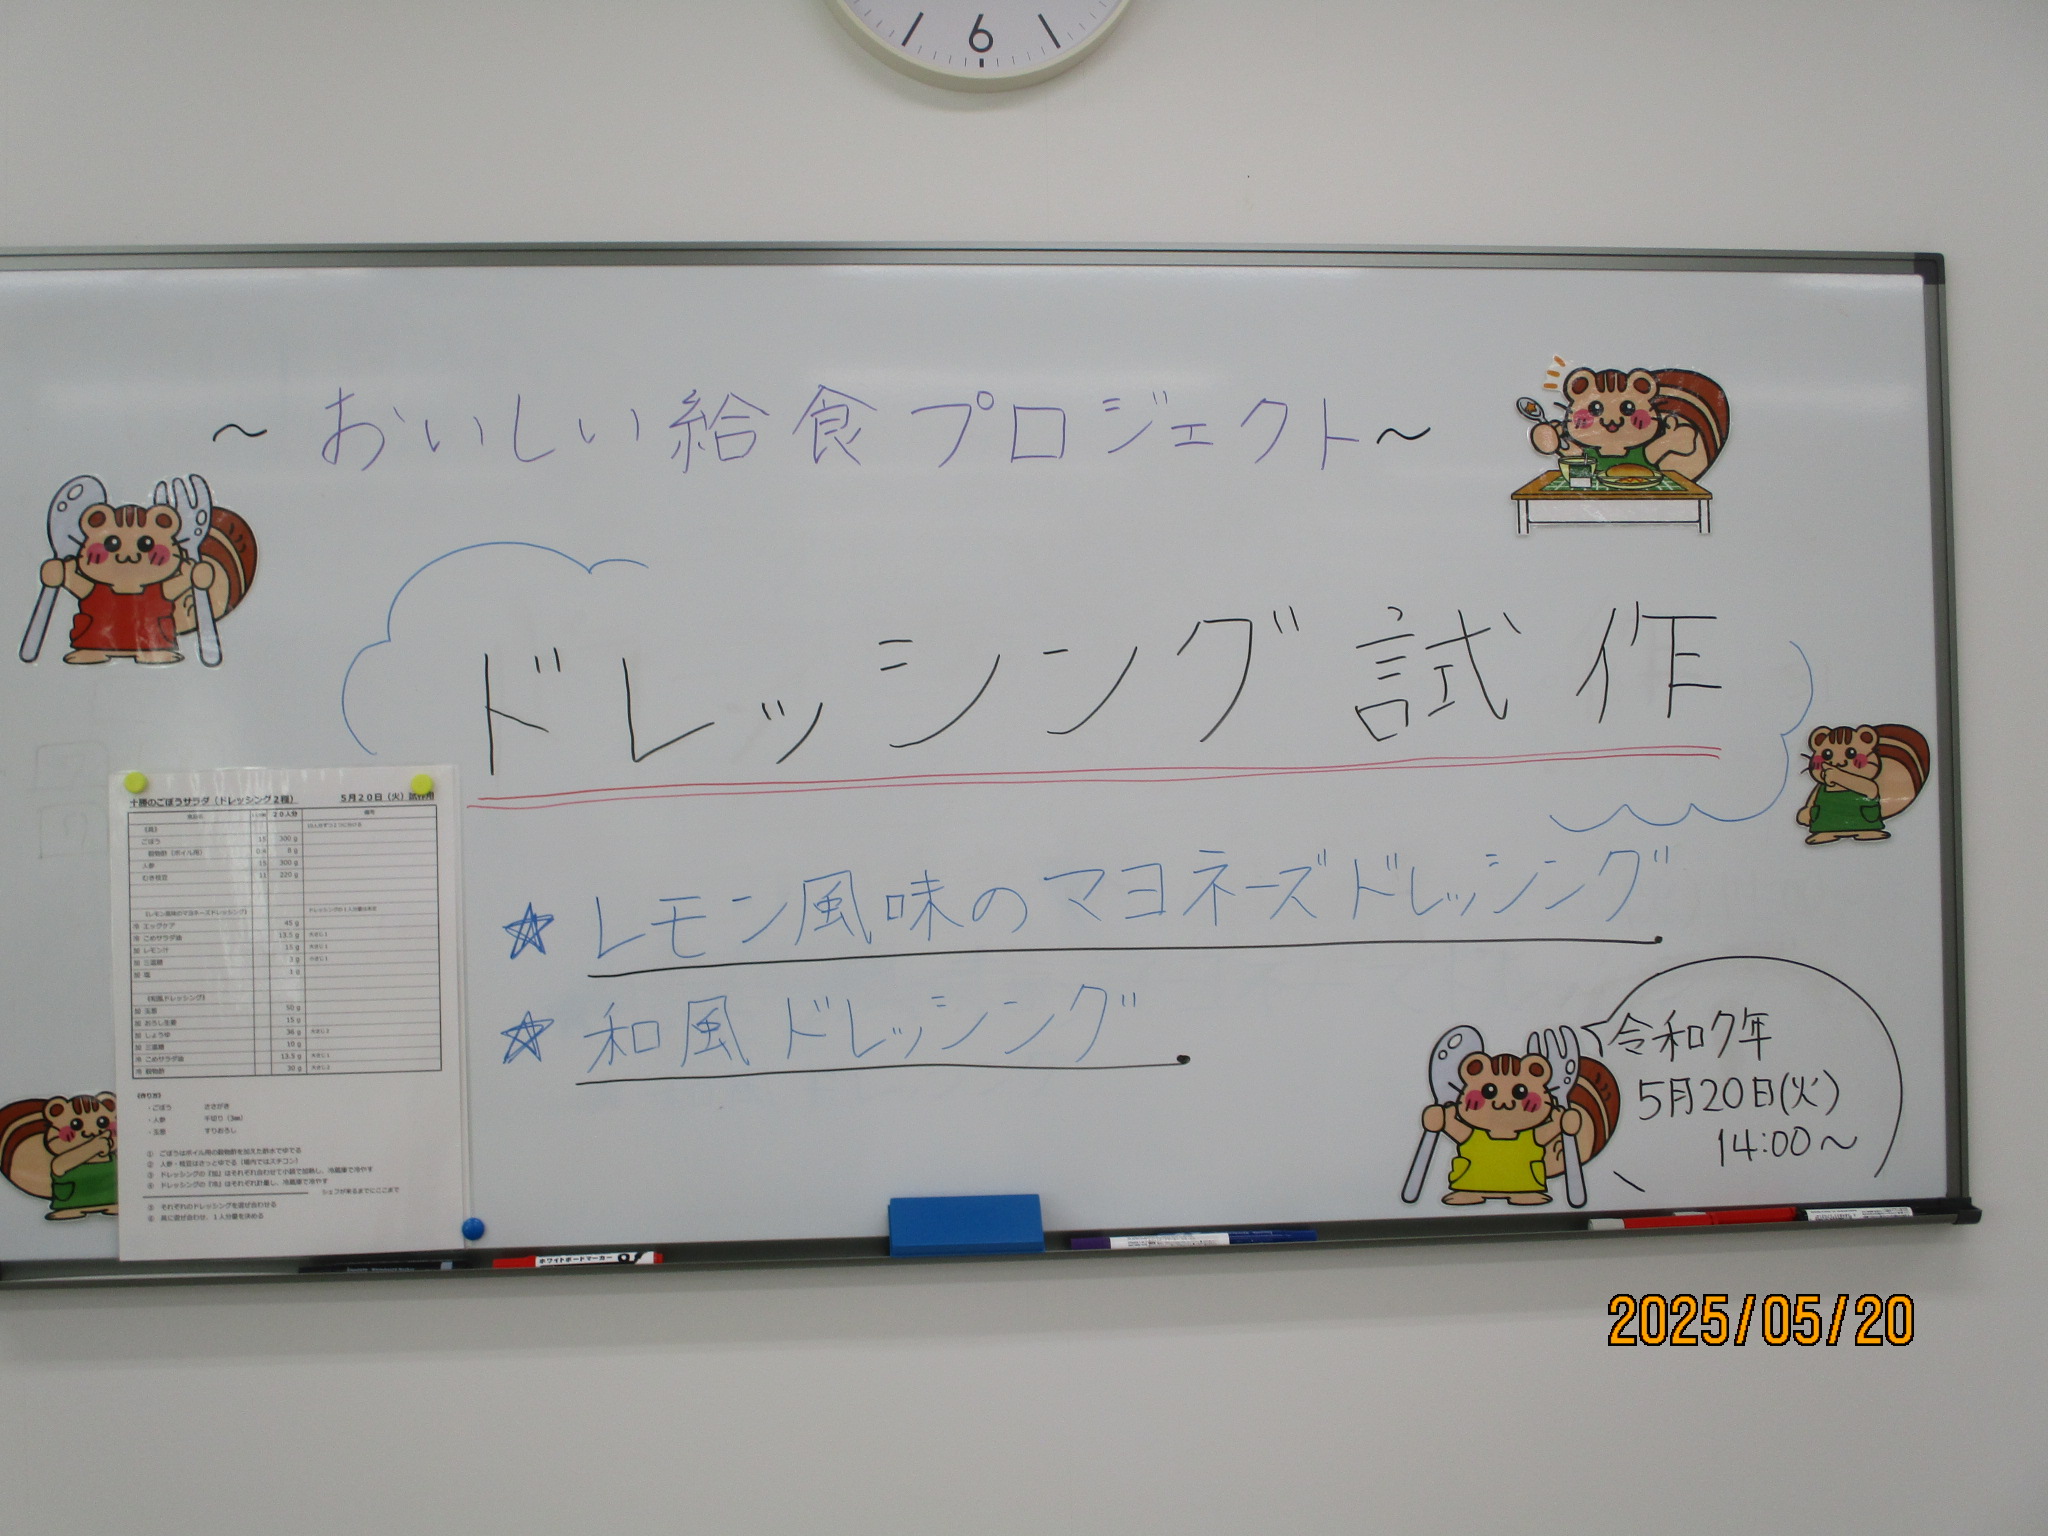 6
～おいしい給食プロジェクト～
ドレッシング試作
★レモン風味のマヨネーズドレッシング
★和風ドレッシング
令和7年
5月20日(火)
14:00～
十勝のごぼうサラダ（ドレッシング２種） 5月20日（火）試作用
２０人分
《具》
ごぼう 15 300 g
穀物酢（ボイル用） 0.4 8 g
人参 15 300 g
むき枝豆 11 220 g
《レモン風味のマヨネーズドレッシング》
冷 エッグケア 45 g
冷 こめサラダ油 13.5 g
加 レモン汁 15 g
加 三温糖 3 g
加 塩 1 g
《和風ドレッシング》
加 玉葱 50 g
加 おろし生姜 15 g
加 しょうゆ 36 g
加 三温糖 10 g
冷 こめサラダ油 13.5 g
冷 穀物酢 30 g
《作り方》
・ごぼう ささがき
・人参 千切り（3㎜）
・玉葱 すりおろし
① ごぼうはボイル用の穀物酢を加えた酢水でゆでる
② 人参・枝豆はさっとゆでる（場内ではスチコン）
③ ドレッシングの『加』はそれぞれ合わせて小鍋で加熱し、冷蔵庫で冷やす
④ ドレッシングの『冷』はそれぞれ計量し、冷蔵庫で冷やす
シェフが来るまでにここまで
⑤ それぞれのドレッシングを混ぜ合わせる
⑥ 具に混ぜ合わせ、１人分量を決める
ホワイトボードマーカー
2025/05/20